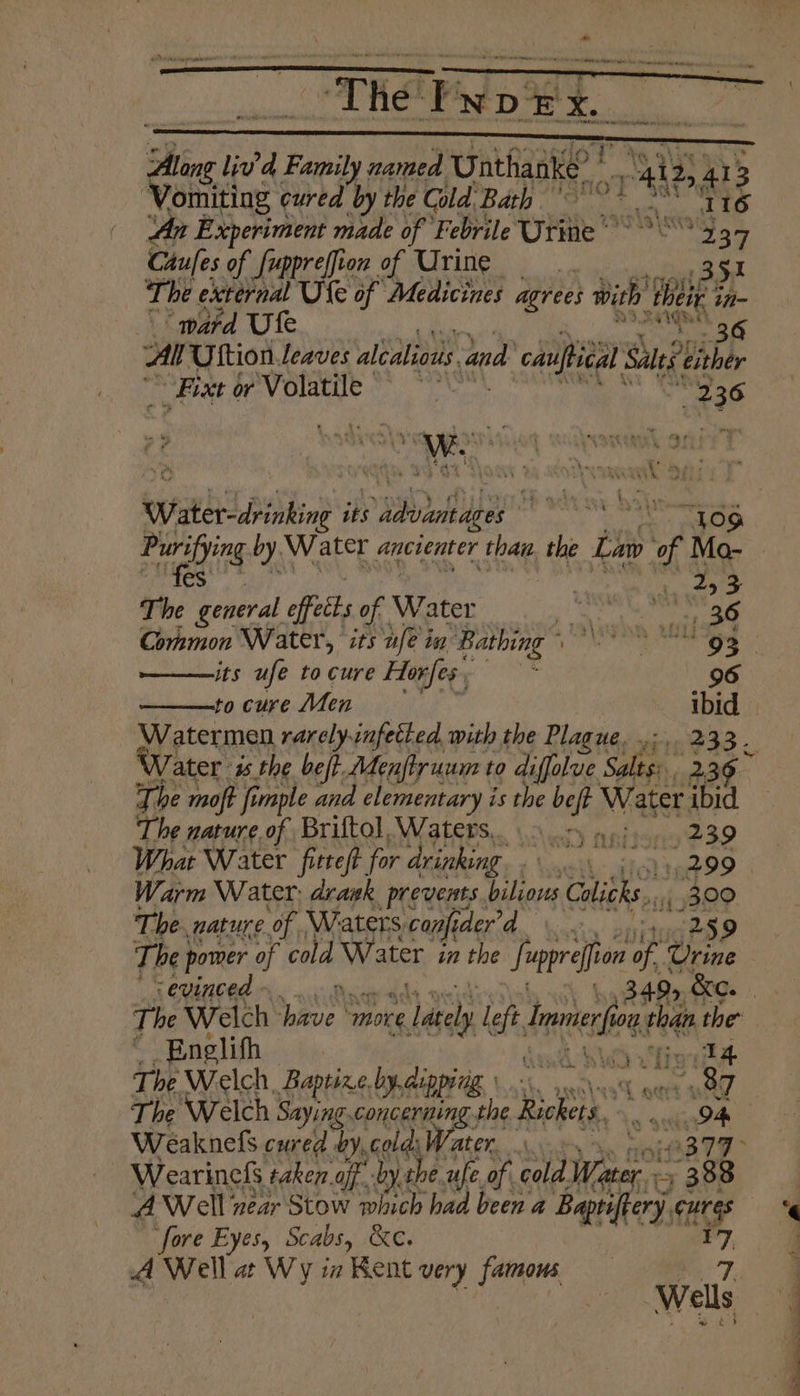 The INDEX.
A long liv'd Family named Unthanke 412, 413
Vomiting cured by the Cold Bath 116
An Experiment made of Febrile Urine 237
Cauſes of ſuppreſſion of Urine 351
The external Uſe of Medicines agrees with their in-
ward Uſe 36
All Uſtion leaves alcalious and cauſtical Salts either
Fixt or Volatile 236
W.
Water-drinking its advantages 109
Purifying by Water ancienter than the Law of Mo-
ſes 2, 3
The general effects of Water 36
Common Water, its uſe in Bathing 93
———its uſe to cure Horſes 96
———to cure Men ibid
Watermen rarely infected with the Plague 233
Water is the beſt Menſtruum to diſſolve Salts 236
The moſt ſimple and elementary is the beſt Water ibid
The nature of Briſtol Waters 239
What Water fitteſt for drinking 299
Warm Water drank prevents bilious Colicks 300
The nature of Waters conſider'd 259
The power of cold Water in the ſuppreſſion of Urine
evinced 349, &c.
The Welch have more lately left Immerſion than the
Engliſh 14
The Welch Baptize by dipping 87
The Welch Saying concerning the Rickets 94
Weakneſs cured by cold Water 377
Wearineſs taken off by the uſe of cold Water 388
A Well near Stow which had been a Baptiſtery cures
ſore Eyes, Scabs, &c. 17
A Well at Wy in Kent very famous 7
Wells